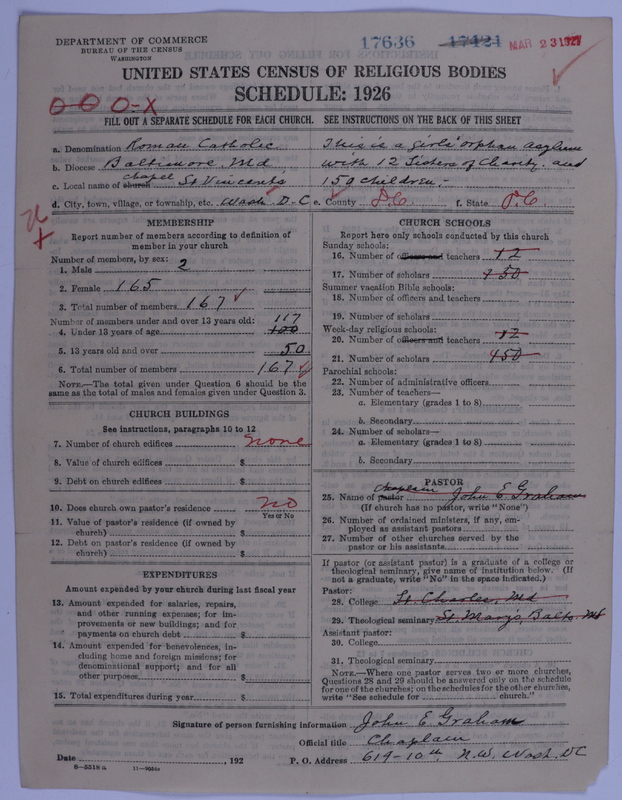 DEPARTMENT OF COMMERCE
BUREAU OF THE CENSUS
WASHINGTON
17636 17424 MAR 23 1927
UNITED STATES CENSUS OF RELIGIOUS BODIES
SCHEDULE: 1926
O O O-X
FILL OUT A SEPARATE SCHEDULE FOR EACH CHURCH. SEE INSTRUCTIONS ON THE BACK OF THIS SHEET
a. Denomination Roman Catholic This is a girls' orphan asylum
b. Diocese Baltimore Md with 12 Sisters of Charity and
chapel
c. Local name of church St Vincent's 150 children,-
d. City, town, village, or township, etc. Wash. D-C e. County D.C f. State D.C
MEMBERSHIP
Report number of members according to definition of
member in your church
Number of members, by sex:
1. Male 2
2. Female 165
3. Total number of members 167
Number of members under and over 13 years old: 117
4. Under 13 years of age 100
5. 13 years old and over 50
6. Total number of members 167
NOTE.—The total given under Question 6 should be the
same as the total of males and females given under Question 3.
CHURCH BUILDINGS
See instructions, paragraphs 10 to 12
7. Number of church edifices none
8. Value of church edifices $
9. Debt on church edifices $
10. Does church own pastor's residence no
Yes or No
11. Value of pastor's residence (if owned by
church) $
12. Debt on pastor's residence (if owned by
church) $
EXPENDITURES
Amount expended by your church during last fiscal year
13. Amount expended for salaries, repairs,
and other running expenses; for im-
provements or new buildings; and for
payments on church debt $
14. Amount expended for benevolences, in-
cluding home and foreign missions; for
denominational support; and for all
other purposes $
15. Total expenditures during year $
CHURCH SCHOOLS
Report here only schools conducted by this church
Sunday schools:
16. Number of officers and teachers 12
17. Number of scholars 150
Summer vacation Bible schools:
18. Number of officers and teachers
19. Number of scholars
Week-day religious schools:
20. Number of officers and teachers 12
21. Number of scholars 150
Parochial schools:
22. Number of administrative officers
23. Number of teachers—
a. Elementary (grades 1 to 8)
b. Secondary
24. Number of scholars—
a. Elementary (grades 1 to 8)
b. Secondary
PASTOR
chaplain
25. Name of pastor John E Graham
(If church has no pastor, write "None")
26. Number of ordained ministers, if any, em-
ployed as assistant pastors
27. Number of other churches served by the
pastor or his assistants
If pastor (or assistant pastor) is a graduate of a college or
theological seminary, give name of institution below. (If
not a graduate, write "No" in the space indicated.)
Pastor:
28. College St. Charles, Md
29. Theological seminary St. Mary's, Balto Md
Assistant pastor:
30. College
31. Theological seminary
NOTE.—Where one pastor serves two or more churches,
Questions 28 and 29 should be answered only on the schedule
for one of the churches; on the schedules for the other churches,
write "See schedule for church."
Signature of person furnishing information John E Graham
Official title Chaplain
Date , 192 P. O. Address 619-10th N.W. Wash. DC